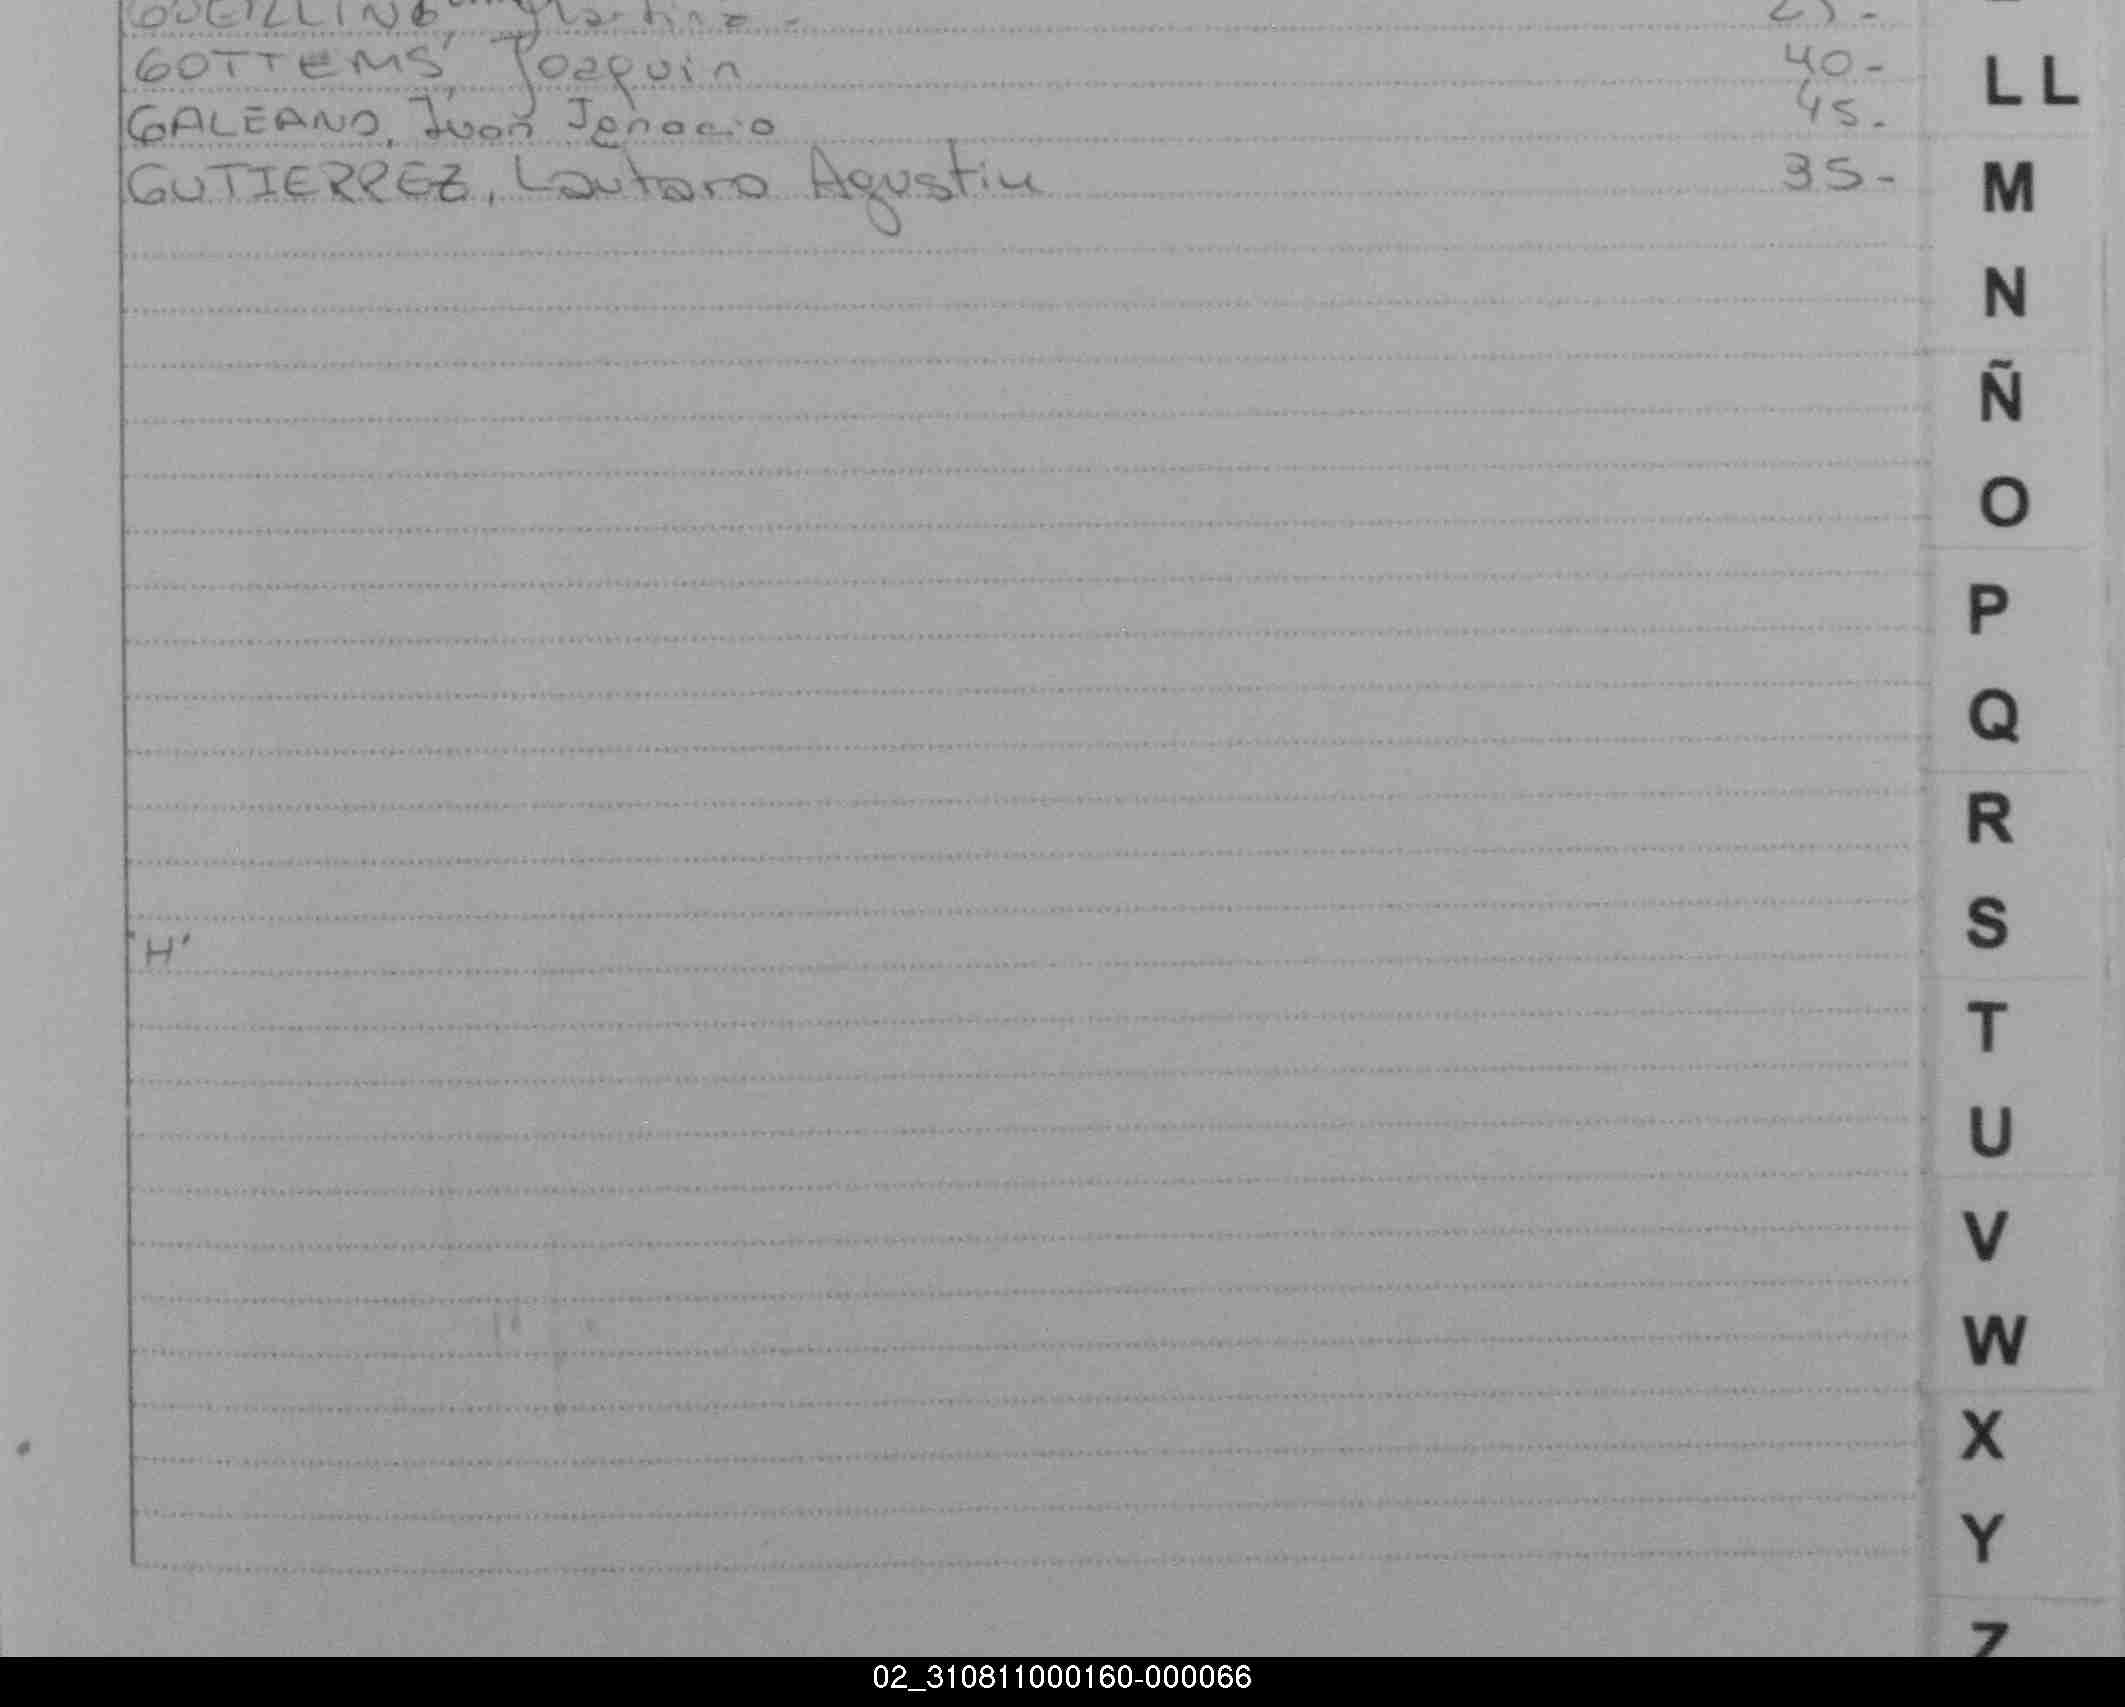 GOTTEMS, Joaquin 40-
GALEANO, Juan Ignacio 45.
GUTIERREZ, Lautaro Agustin 35-
H'
LL
M
N
Ñ
O
P
Q
R
S
T
U
V
W
X
Y
Z
02_310811000160-000066